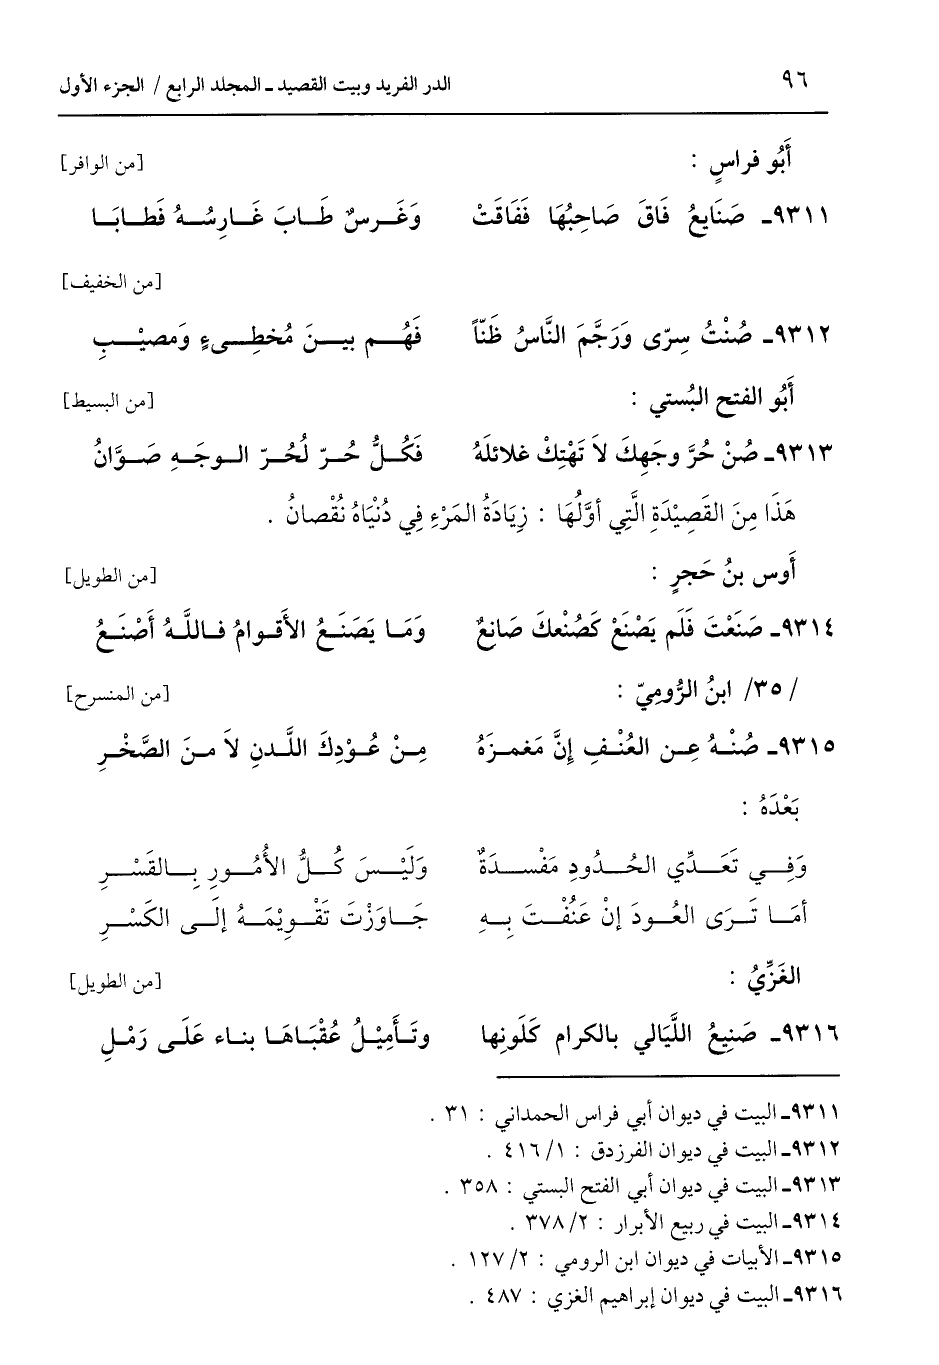 ٩٦ الدر الفريد وبيت القصيد ـ المجلد الرابع / الجزء الأول
أَبُو فراسٍ : [من الوافر]
٩٣١١ـ صَنَايعُ فَاقَ صَاحِبُهَا فَفَاقَتْ وَغَرسٌ طَابَ غَارِسُهُ فَطابَا
[من الخفيف]
٩٣١٢ـ صُنْتُ سِرّى وَرَجَّمَ النَّاسُ ظَنّاً فَهُم بينَ مُخطِىءٍ وَمصيْبِ
أَبُو الفتح البُستي : [من البسيط]
٩٣١٣ـ صُنْ حُرَّ وجَهِكَ لاَ تَهْتِكْ غلائلَهُ فَكُلُّ حُرّ لُحُرّ الوجَهِ صَوَّانُ
هَذَا مِنَ القَصِيْدَةِ الَّتِي أوَّلُهَا : زِيَادَةُ المَرْءِ فِي دُنْيَاهُ نُقْصانُ .
أَوس بنُ حَجرٍ : [من الطويل]
٩٣١٤ـ صَنَعْتَ فَلَم يَصْنَعْ كَصُنْعكَ صَانعٌ وَمَا يَصَنَعُ الأَقوامُ فاللهُ أَصْنَعُ
/ ٣٥/ ابنُ الرُّوميّ : [من المنسرح]
٩٣١٥ـ صُنْهُ عِن العُنْفِ إنَّ مَغمزَهُ مِنْ عُوْدِكَ اللَّدنِ لاَ منَ الصَّخْرِ
بَعْدَهُ :
وَفِي تَعَدِّي الحُدُودِ مَفْسدَةٌ وَلَيْسَ كُلُّ الأُمُورِ بِالقَسْرِ
أمَا تَرَى العُودَ إنْ عَنُفْتَ بِهِ جَاوَزْتَ تَقْوِيْمَهُ إلَى الكَسْرِ
الغَزِّيُ : [من الطويل]
٩٣١٦ـ صَنِيعُ اللَّيَالي بالكرام كَلَونِها وتَأَمِيْلُ عُقْبَاهَا بناء عَلَى رَمْلِ
٩٣١١ـ البيت في ديوان أبي فراس الحمداني : ٣١ .
٩٣١٢ـ البيت في ديوان الفرزدق : ١/ ٤١٦ .
٩٣١٣ـ البيت في ديوان أبي الفتح البستي : ٣٥٨ .
٩٣١٤ـ البيت في ربيع الأبرار : ٢/ ٣٧٨ .
٩٣١٥ـ الأبيات في ديوان ابن الرومي : ٢/ ١٢٧ .
٩٣١٦ـ البيت في ديوان إبراهيم الغزي : ٤٨٧ .